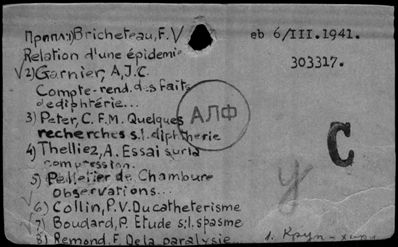 Припл:1) Bricheteau, F. V
еb 6/III.1941.
Relation d'une épidemie
303317.
√2) Garnier, A, J.C.
Compte-rend. des faits
ediphtérie...
3) Peter, C. F. M. Quelques
recherches s.l. diphtherie
АЛФ
4) Thelliez, A. Essai sur la
compression.
C
5) Pelletier de Chambure
Observations...
√6) Collin, P.V. Du catheterisme
√7) Boudard, P. Etude s:l. spasme
8) Remond, F. De la paralysie
1. Круп-